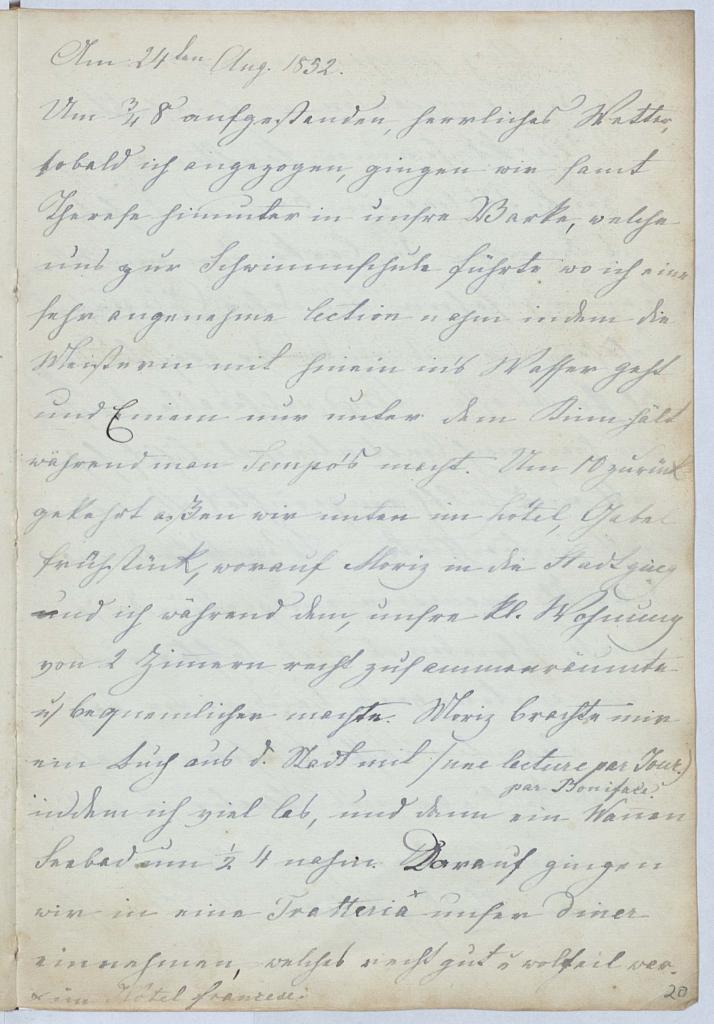 Am 24ten Aug. 1852.
Um 3/4 8 aufgestanden, herrliches Wetter,
sobald ich angezogen, gingen wir samt
Therese hinunter in unsre Barke, welche
uns zur Schwimmschule führte wo ich eine
sehr angenehme Lection nahm indem die
Meisterin mit hinein in's Wasser geht
und Einem nur unter dem Kinn hält
während man Tempo's macht. Um 10 zurück
gekehrt aßen wir unten im Hôtel, Gabel
frühstück, worauf Moriz in die Stadt ging
und ich während dem, unsre kl. Wohnung
von 2 Zimern recht zusammenräumte
u bequemlicher machte. Moriz brachte mir
ein Buch aus d. Stadt mit (une lecture par Jour.)
par Boniface.
indem ich viel las, und dann ein Wanen
Seebad um 1/2 4 nahm. Darauf gingen
wir in eine Tratteria x unser Diner
einnehmen, welches recht gut u wolfeil war.
x im Hôtel francese.
20